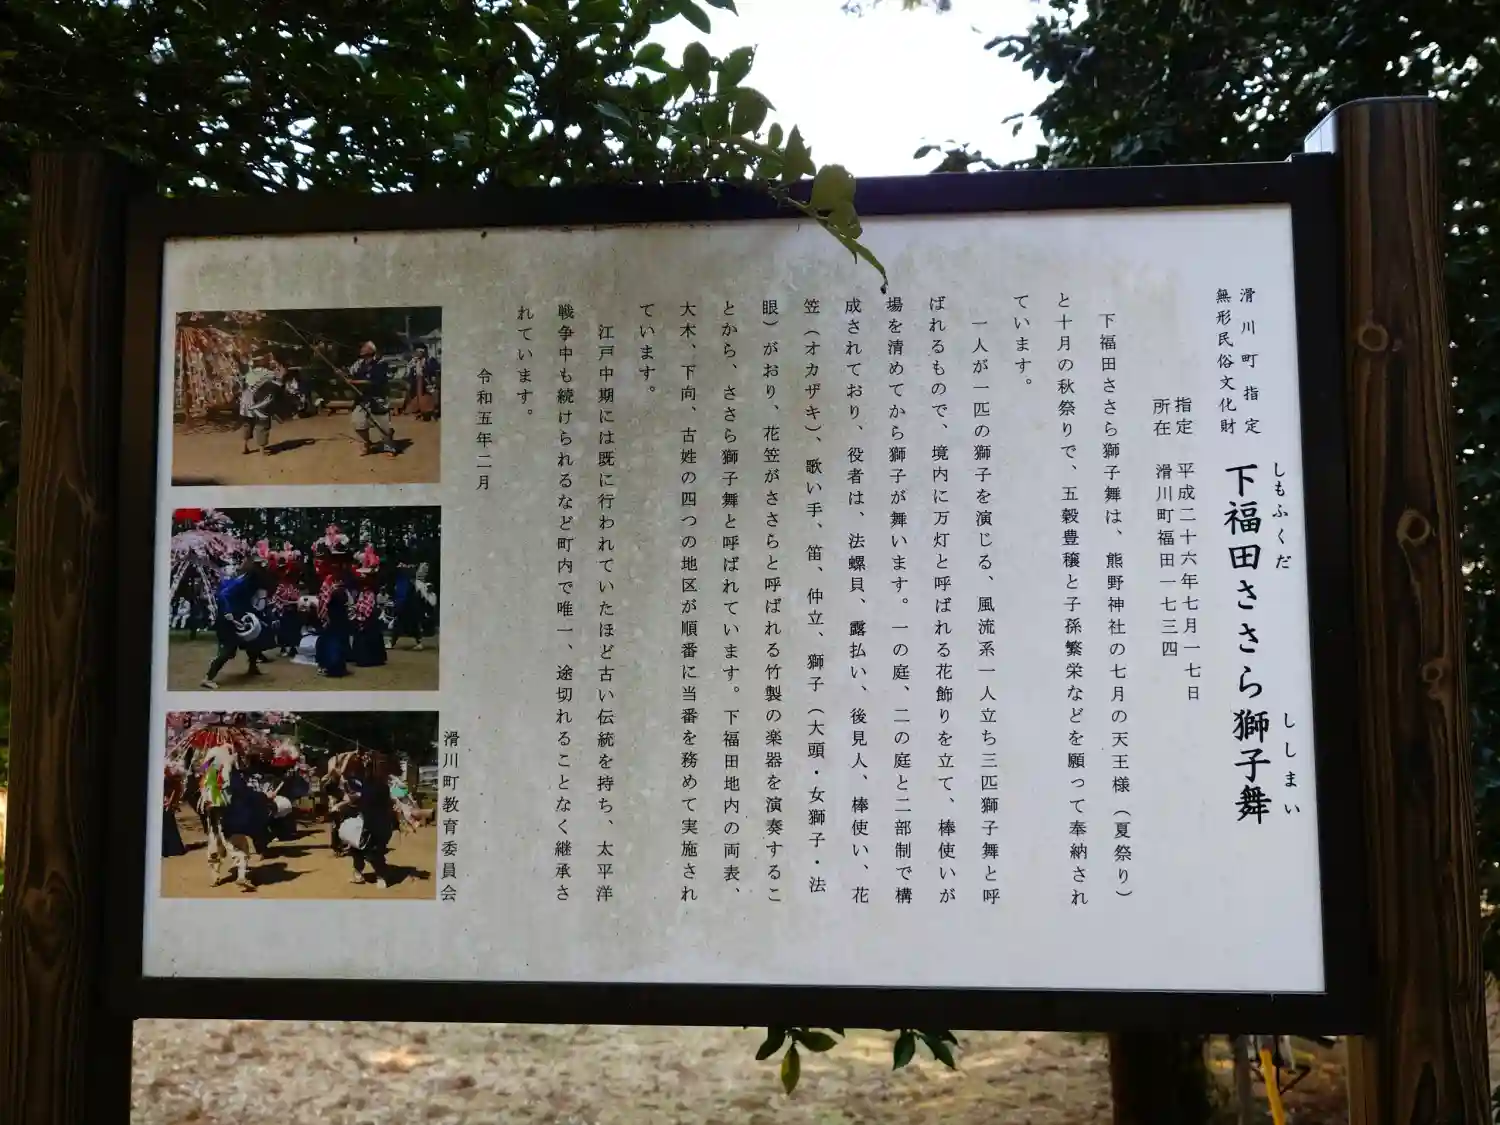 滑川町指定
無形民俗文化財
しもふくだ ししまい
下福田ささら獅子舞
指定 平成二十六年七月一七日
所在 滑川町福田一七三四
下福田ささら獅子舞は、熊野神社の七月の天王様（夏祭り）
と十月の秋祭りで、五穀豊穣と子孫繁栄などを願って奉納され
ています。
一人が一匹の獅子を演じる、風流系一人立ち三匹獅子舞と呼
ばれるもので、境内に万灯と呼ばれる花飾りを立て、棒使いが
場を清めてから獅子が舞います。一の庭、二の庭と二部制で構
成されており、役者は、法螺貝、露払い、後見人、棒使い、花
笠（オカザキ）、歌い手、笛、仲立、獅子（大頭・女獅子・法
眼）がおり、花笠がささらと呼ばれる竹製の楽器を演奏するこ
とから、ささら獅子舞と呼ばれています。下福田地内の両表、
大木、下向、古姓の四つの地区が順番に当番を務めて実施され
ています。
江戸中期には既に行われていたほど古い伝統を持ち、太平洋
戦争中も続けられるなど町内で唯一、途切れることなく継承さ
れています。
令和五年二月
滑川町教育委員会